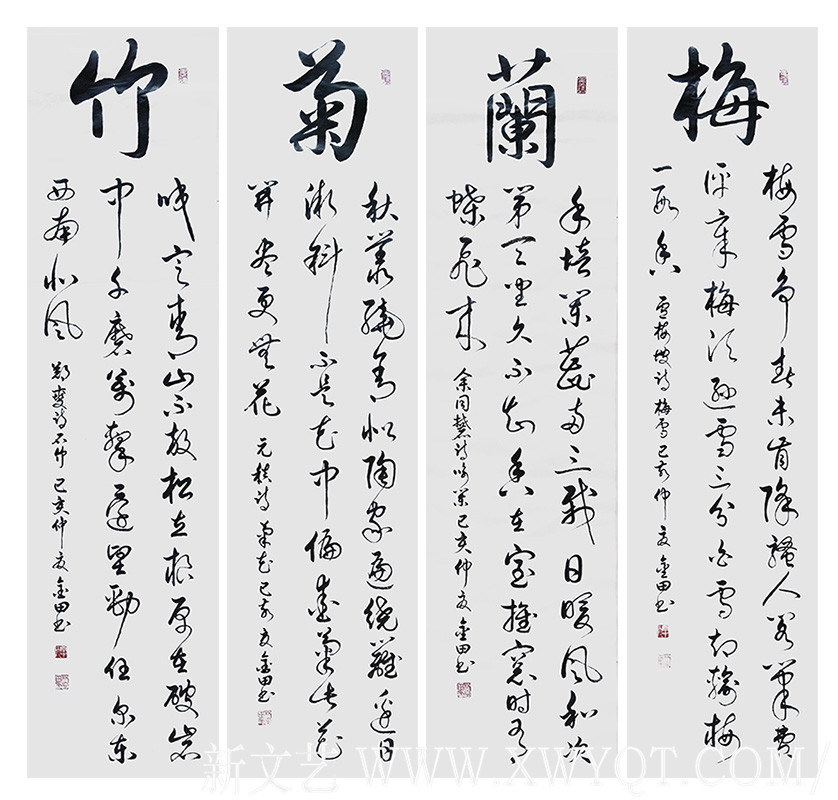 梅
梅雪争春未肯降骚人阁笔费
评章梅须逊雪三分白雪却输梅
一段香
卢梅坡诗梅雪己亥仲夏金田书
蘭
手培兰蕊两三栽日暖风和次
第开坐久不知香在室推窗时有
蝶飞来
余同麓诗咏兰己亥仲夏金田书
菊
秋丛绕舍似陶家遍绕篱边日
渐斜不是花中偏爱菊此花
开尽更无花
元稹诗菊花己亥夏金田书
竹
咬定青山不放松立根原在破岩
中千磨萬擊还坚劲任尔东
西南北风
郑燮诗石竹己亥仲夏金田书
新文艺 WWW.XWYQT.COM/